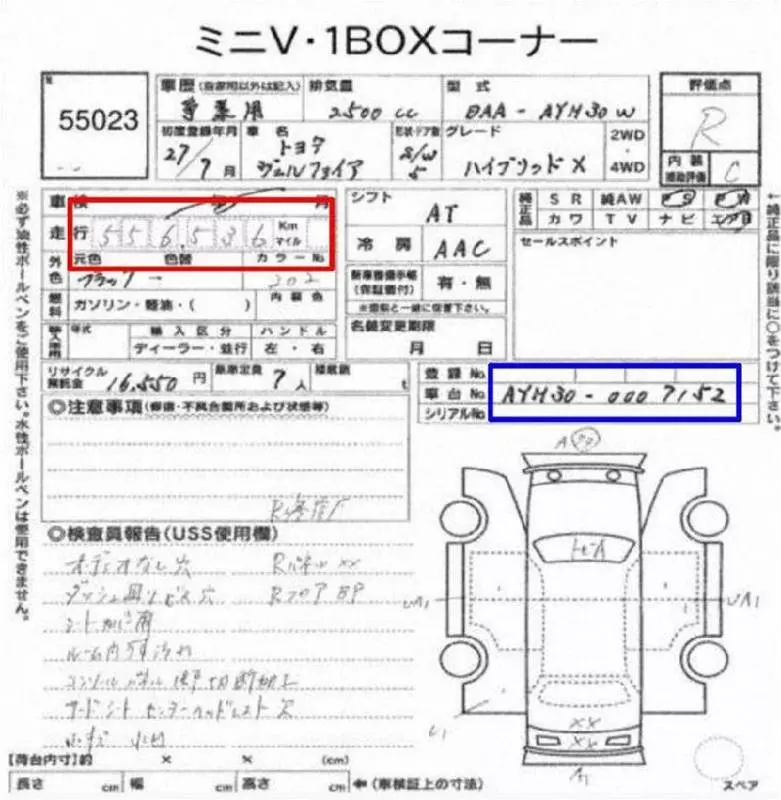 ミニV・1BOXコーナー
55023
車歴 (自家用以外は記入) 排気量 型式
事業用 2500cc DAA-AYH30W
評価点
R
初度登録年月 車名 形状・ドア数 グレード
27/7月 トヨタ ヴェルファイア S/W 5 ハイブリッドX
2WD・4WD
内装補助評価 C
車検 年 月
走行 556,536 Km マイル
シフト AT
純正品 SR 純AW PS PW
カワ TV ナビ エアB
外色 元色 色替 カラーNo.
ブラック 202
冷房 AAC
セールスポイント
燃料 ガソリン・軽油・( ) 内装色
新車整備手帳(保証書付) 有・無
※書類と一緒に保管下さい。
輸入車用 年式 輸入区分 ハンドル
ディーラー・並行 左・右
名義変更期限 月 日
リサイクル預託金 16,550円 乗車定員 7人 積載量 t
登録No.
車台No. AYH30-0007152
シリアルNo.
◎注意事項(修復・不具合箇所および状態等)
R修復歴
◎検査員報告(USS使用欄)
オーディオなし穴 Rパネルxx
ダッシュ周りビス穴
シートカビ有
ルーム内汚れ
サードシートセンターヘッドレスト欠
※必ず油性ボールペンをご使用下さい。水性ボールペンは使用できません。
←純正品に限り該当に○をつけて下さい。
A
UA1 UA1
XX
XX
A1
スペア
【荷台内寸】約 × × (cm)
長さ cm 幅 cm 高さ cm ←(車検証上の寸法)